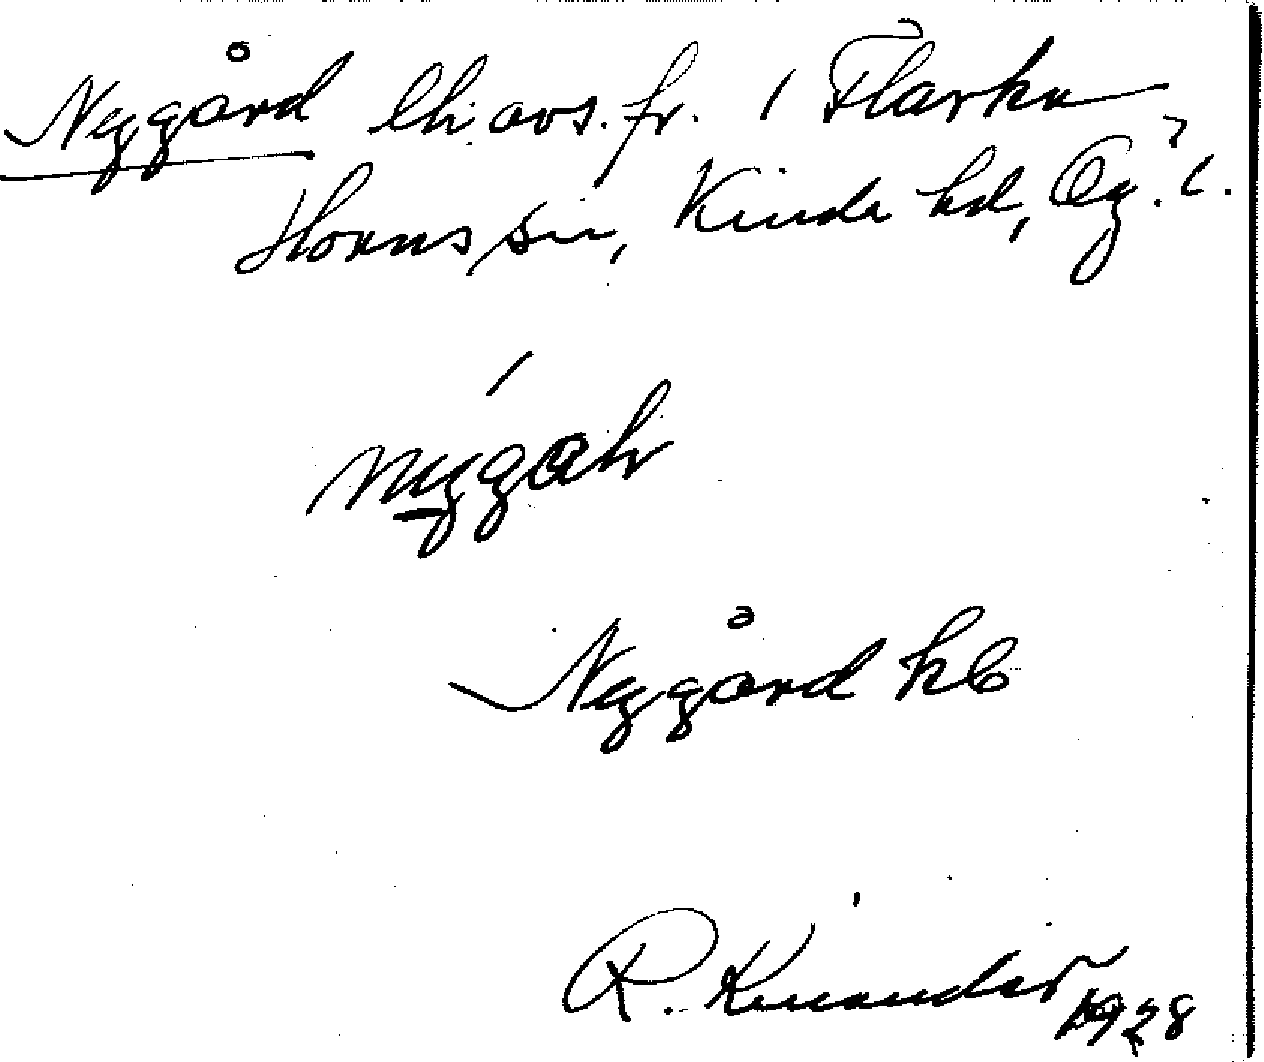 Nygård lh avs. fr. 1 Flarka
Horns sn, Kinda hd, Ög. l.
nygǫḷ
Nygård kb
R. Kinander
1928